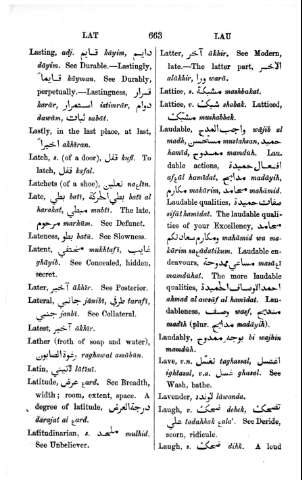 LAT 663 LAU
Lasting, adj. قايم kāyim, دايم
dāyim. See Durable.—Lastingly,
قايماً kāyman. See Durably,
perpetually.—Lastingness, قرار
karār, استمرار istimrār, دوام
dawām, ثبات sabāt.
Lastly, in the last place, at last,
آخراً akhiran.
Latch, s. (of a door), قفل kufl. To
latch, قفل kafal.
Latchets (of a shoe), نعلين
Late, بطي batī, بطي الحركة batī al
harakat, مبطي mabtī. The late,
مرحوم marhūm. See Defunct.
Lateness, بطو batū. See Slowness.
Latent, مختفي mukhtafī, غايب
ghāyib. See Concealed, hidden,
secret.
Later, آخر ākhir. See Posterior.
Lateral, جانبي jānibī, طرفي tarafī,
جنبي janbī. See Collateral.
Latest, آخر ākhir.
Lather (froth of soap and water),
رغوة الصابون raghawat asābūn.
Latin, لاتيني lātīnī.
Latitude, عرض See Breadth,
width; room, extent, space. A
degree of latitude, درجة العرض
darajat al
Latitudinarian, s. ملحد mulhid.
See Unbeliever.
Latter, آخر ākhir. See Modern,
late.—The latter part, الآخر
alākhir, ورا warā.
Lattice, s. مشبكة mushbakat.
Lattice, v. شبكت shabak. Latticed,
مشبكت mushabbak.
Laudable, واجب المدح wājib al
madh, مستحسن mustahsan, حميد
hamīd, ممدوح mamdūh. Lau-
dable actions, افعال حميدة
hamīdat, مدايح madāyih,
مكارم makārim, محامد mahāmid.
Laudable qualities, صفات حميدة
sifāt hamīdat. The laudable quali-
ties of your Excellency, محامد
ومكارم سعادتكم mahāmid wa ma-
kārim Laudable en-
deavours, مساعي ممدوحة
mamdūhat. The more laudable
qualities, احمد اوصاف الحميدة
ahmad al awsāf al hamīdat. Lau-
dableness, وصف wasf, مديح
madīh (plur. مدايح madāyih).
Laudably, بوجه ممدوح bi wajhin
mamdūh.
Lave, v.n. تغسل taghassal, اغتسل
ightasal, v.a. غسل ghasal. See
Wash, bathe.
Lavender, لاوندة lāwanda.
Laugh, v. ضحكت dehek, تضحكت
علي tadahhak See Deride,
scorn, ridicule.
Laugh, s. ضحكت dihk. A loud